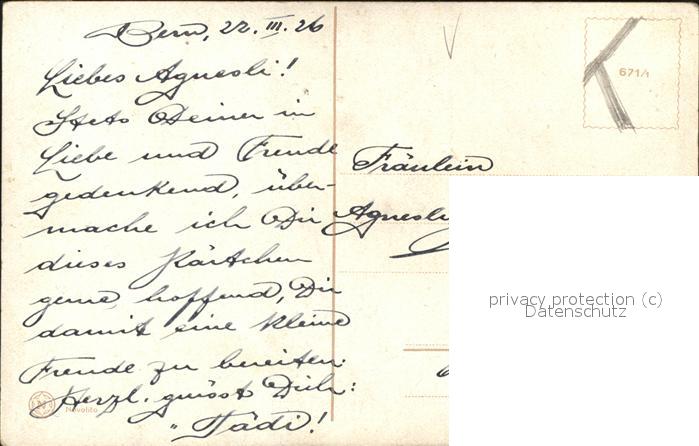 Bern, 22. III. 26
Liebes Agnesli!
Stets Deiner in
Liebe und Freude
gedenkend, über-
mache ich Dir
dieses Kärtchen
gerne, hoffend, Dir
damit eine kleine
Freude zu bereiten.
Herzl. grüsst Dich:
"Tädi!
Novolito
671/1
Fräulein
Agnesli
privacy protection (c)
Datenschutz